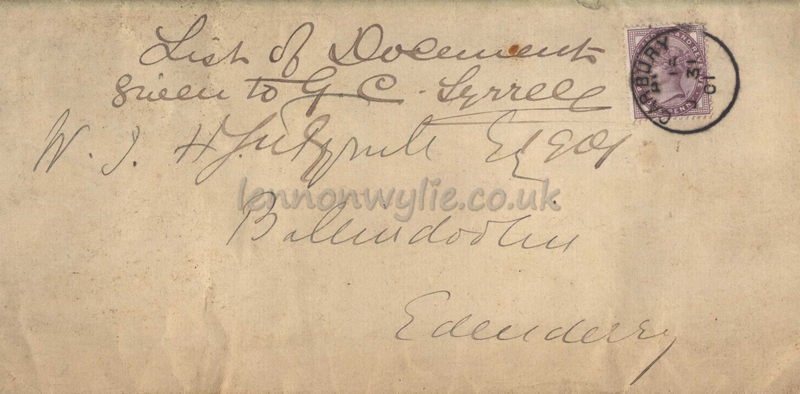 List of Documents
given to G. C. Tyrrell
W. J. H Tyrrell Esq
1901
lennonwylie.co.uk
Ballindoolin
Edenderry
CARBURY
31
01
PENNY